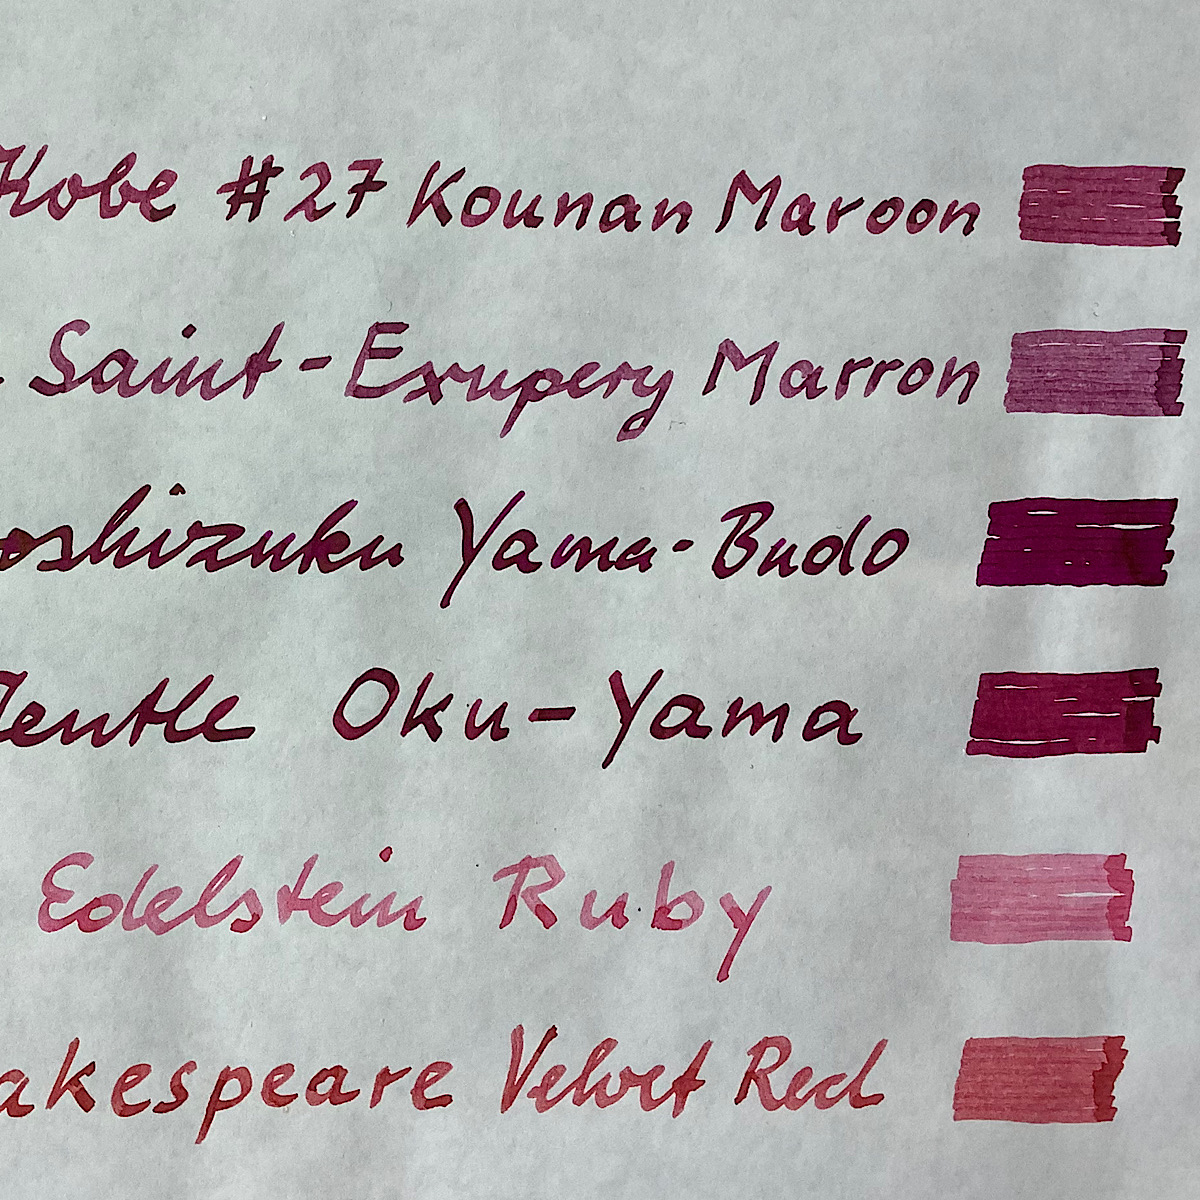 Kobe #27 Kounan Maroon
Saint-Exupery Marron
oshizuku Yama-Budo
Jentle Oku-Yama
Edelstein Ruby
akespeare Velvet Red